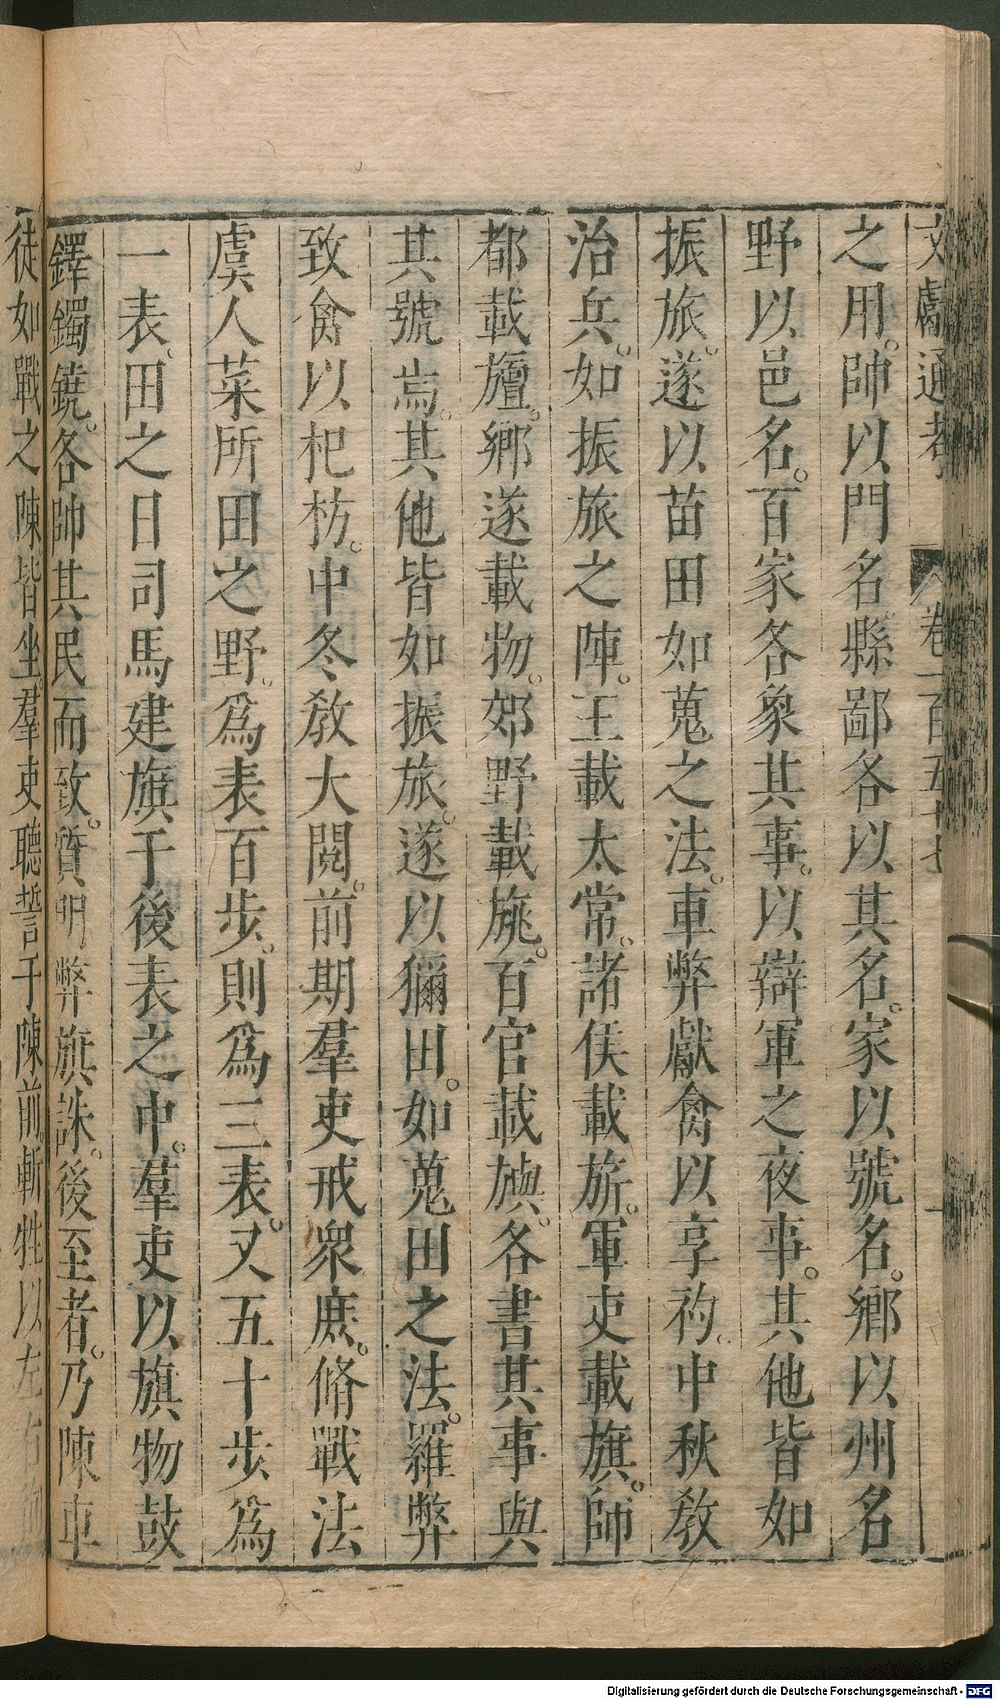 文獻通考 卷一百五十七
之用。帥以門名。縣鄙各以其名。家以號名。鄉以州名
野以邑名。百家各象其事。以辯軍之夜事。其他皆如
振旅。遂以苗田如蒐之法。車弊獻禽以享礿。中秋敎
治兵。如振旅之陣。王載太常。諸侯載旂。軍吏載旗。師
都載旜。鄉遂載物。郊野載旐。百官載旟。各書其事與
其號焉。其他皆如振旅。遂以獮田。如蒐田之法。羅弊
致禽以祀祊。中冬敎大閱。前期羣吏戒衆庶。脩戰法
虞人萊所田之野。爲表百步。則爲三表。又五十步爲
一表。田之日司馬建旗于後表之中。羣吏以旗物鼓
鐸鐲鐃。各帥其民而致。質明弊旗誅。後至者。乃陳車
徒如戰之陳皆坐羣吏聽誓于陳前。斬牲以左右
Digitalisierung gefördert durch die Deutsche Forschungsgemeinschaft - DFG